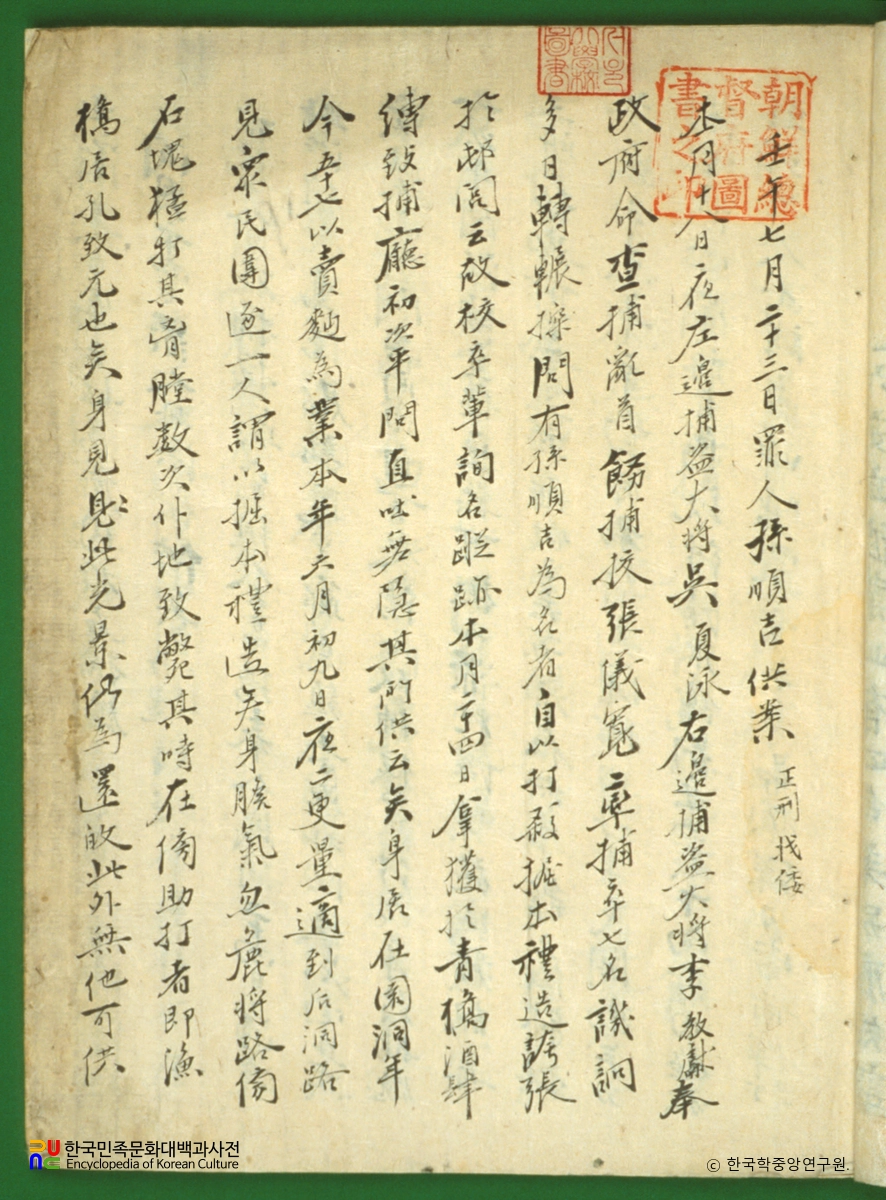 壬午七月二十三日罪人孫順吉供案 正刑 戕倭
本月十八日夜左邊捕盜大將吳夏泳右邊捕盜大將李教獻奉
政府命查捕亂首飭捕校張儀寬率捕卒七名譏詗
多日轉輾探問有孫順吉為名者自以打殺掘本禮造誇張
於邨閭云故校卒輩詢名蹤跡本月二十四日拿獲於青橋酒肆
縛致捕廳初次平問直吐無隱其所供云矣身居在園洞年
今五十七以賣麵為業本年六月初九日夜二更量適到后洞路
見眾民圍逐一人謂以掘本禮造矣身膽氣忽麁將路傍
石塊猛打其胷膛數次仆地致斃其時在傍助打者即漁
橋居孔致元也矣身見此光景仍為還避此外無他可供
朝鮮總督府圖書之印
圖書
한국민족문화대백과사전
Encyclopedia of Korean Culture
© 한국학중앙연구원.